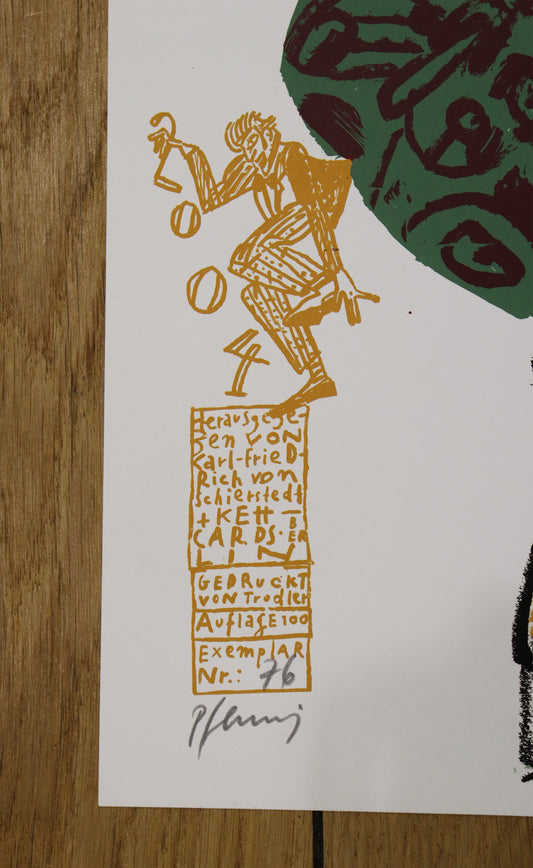 Herausgege-
Ben von
Karl-FrieD-
Rich von
Schierstedt
+ KETT -
CARDS · BER
LIN
GEDRuckT
VON Trodler
AuflagE 100
ExemplAR
Nr.: 76
Pfennig